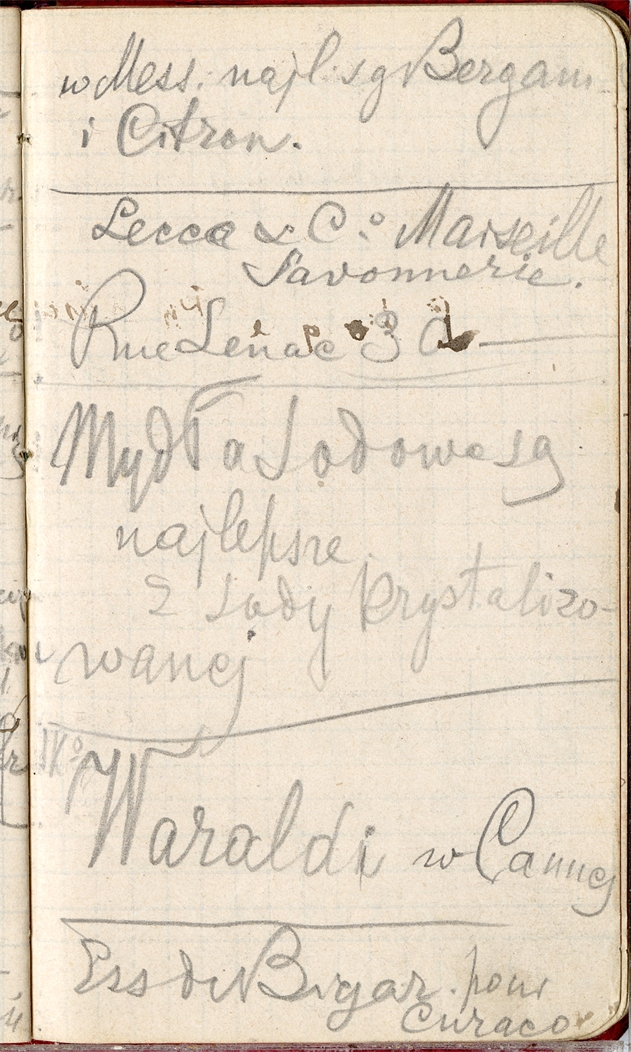 w Mess. najl. są Bergam
i Citron.
Lecca & C.º Marseille
Savonnerie.
Rue Lenac 30
Mydła sodowe są
najlepsze
z sody krystalizo-
wanej
Waraldi w Cannes
Ess du Bigar. pour
Curaco